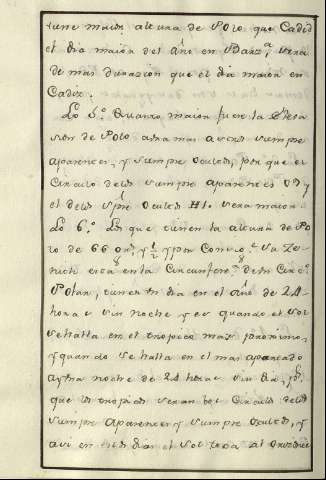 tiene maior altura de Polo que Cadiz
el dia maior del año en Barz.ª, sera
de mas duracion que el dia maior en
Cadiz.
Lo 5.º Quanto maior fuere la
sion de Polo abra mas Astros siempre
aparentes, y siempre Ocultos, por que el
Circulo delos siempre aparentes OS y
el delos spre Ocultos HI. sera maior
Lo 6.º Los que tienen la altura de Po
lo de 66 y ½ y por su Ze
nith esta en la Circunferen.ª de su Circ.º
Polar, tienen un dia en el año de 24
horas sin noche y es quando el Sol
se halla en el tropico mas proximo,
y quando se halla en el mas apartado
ay una noche de 24 horas sin dia,
que los tropicos seran los Circulos delos
siempre Aparentes y siempre Ocultos, y
assi en tales dias el Sol toca al Orizonte